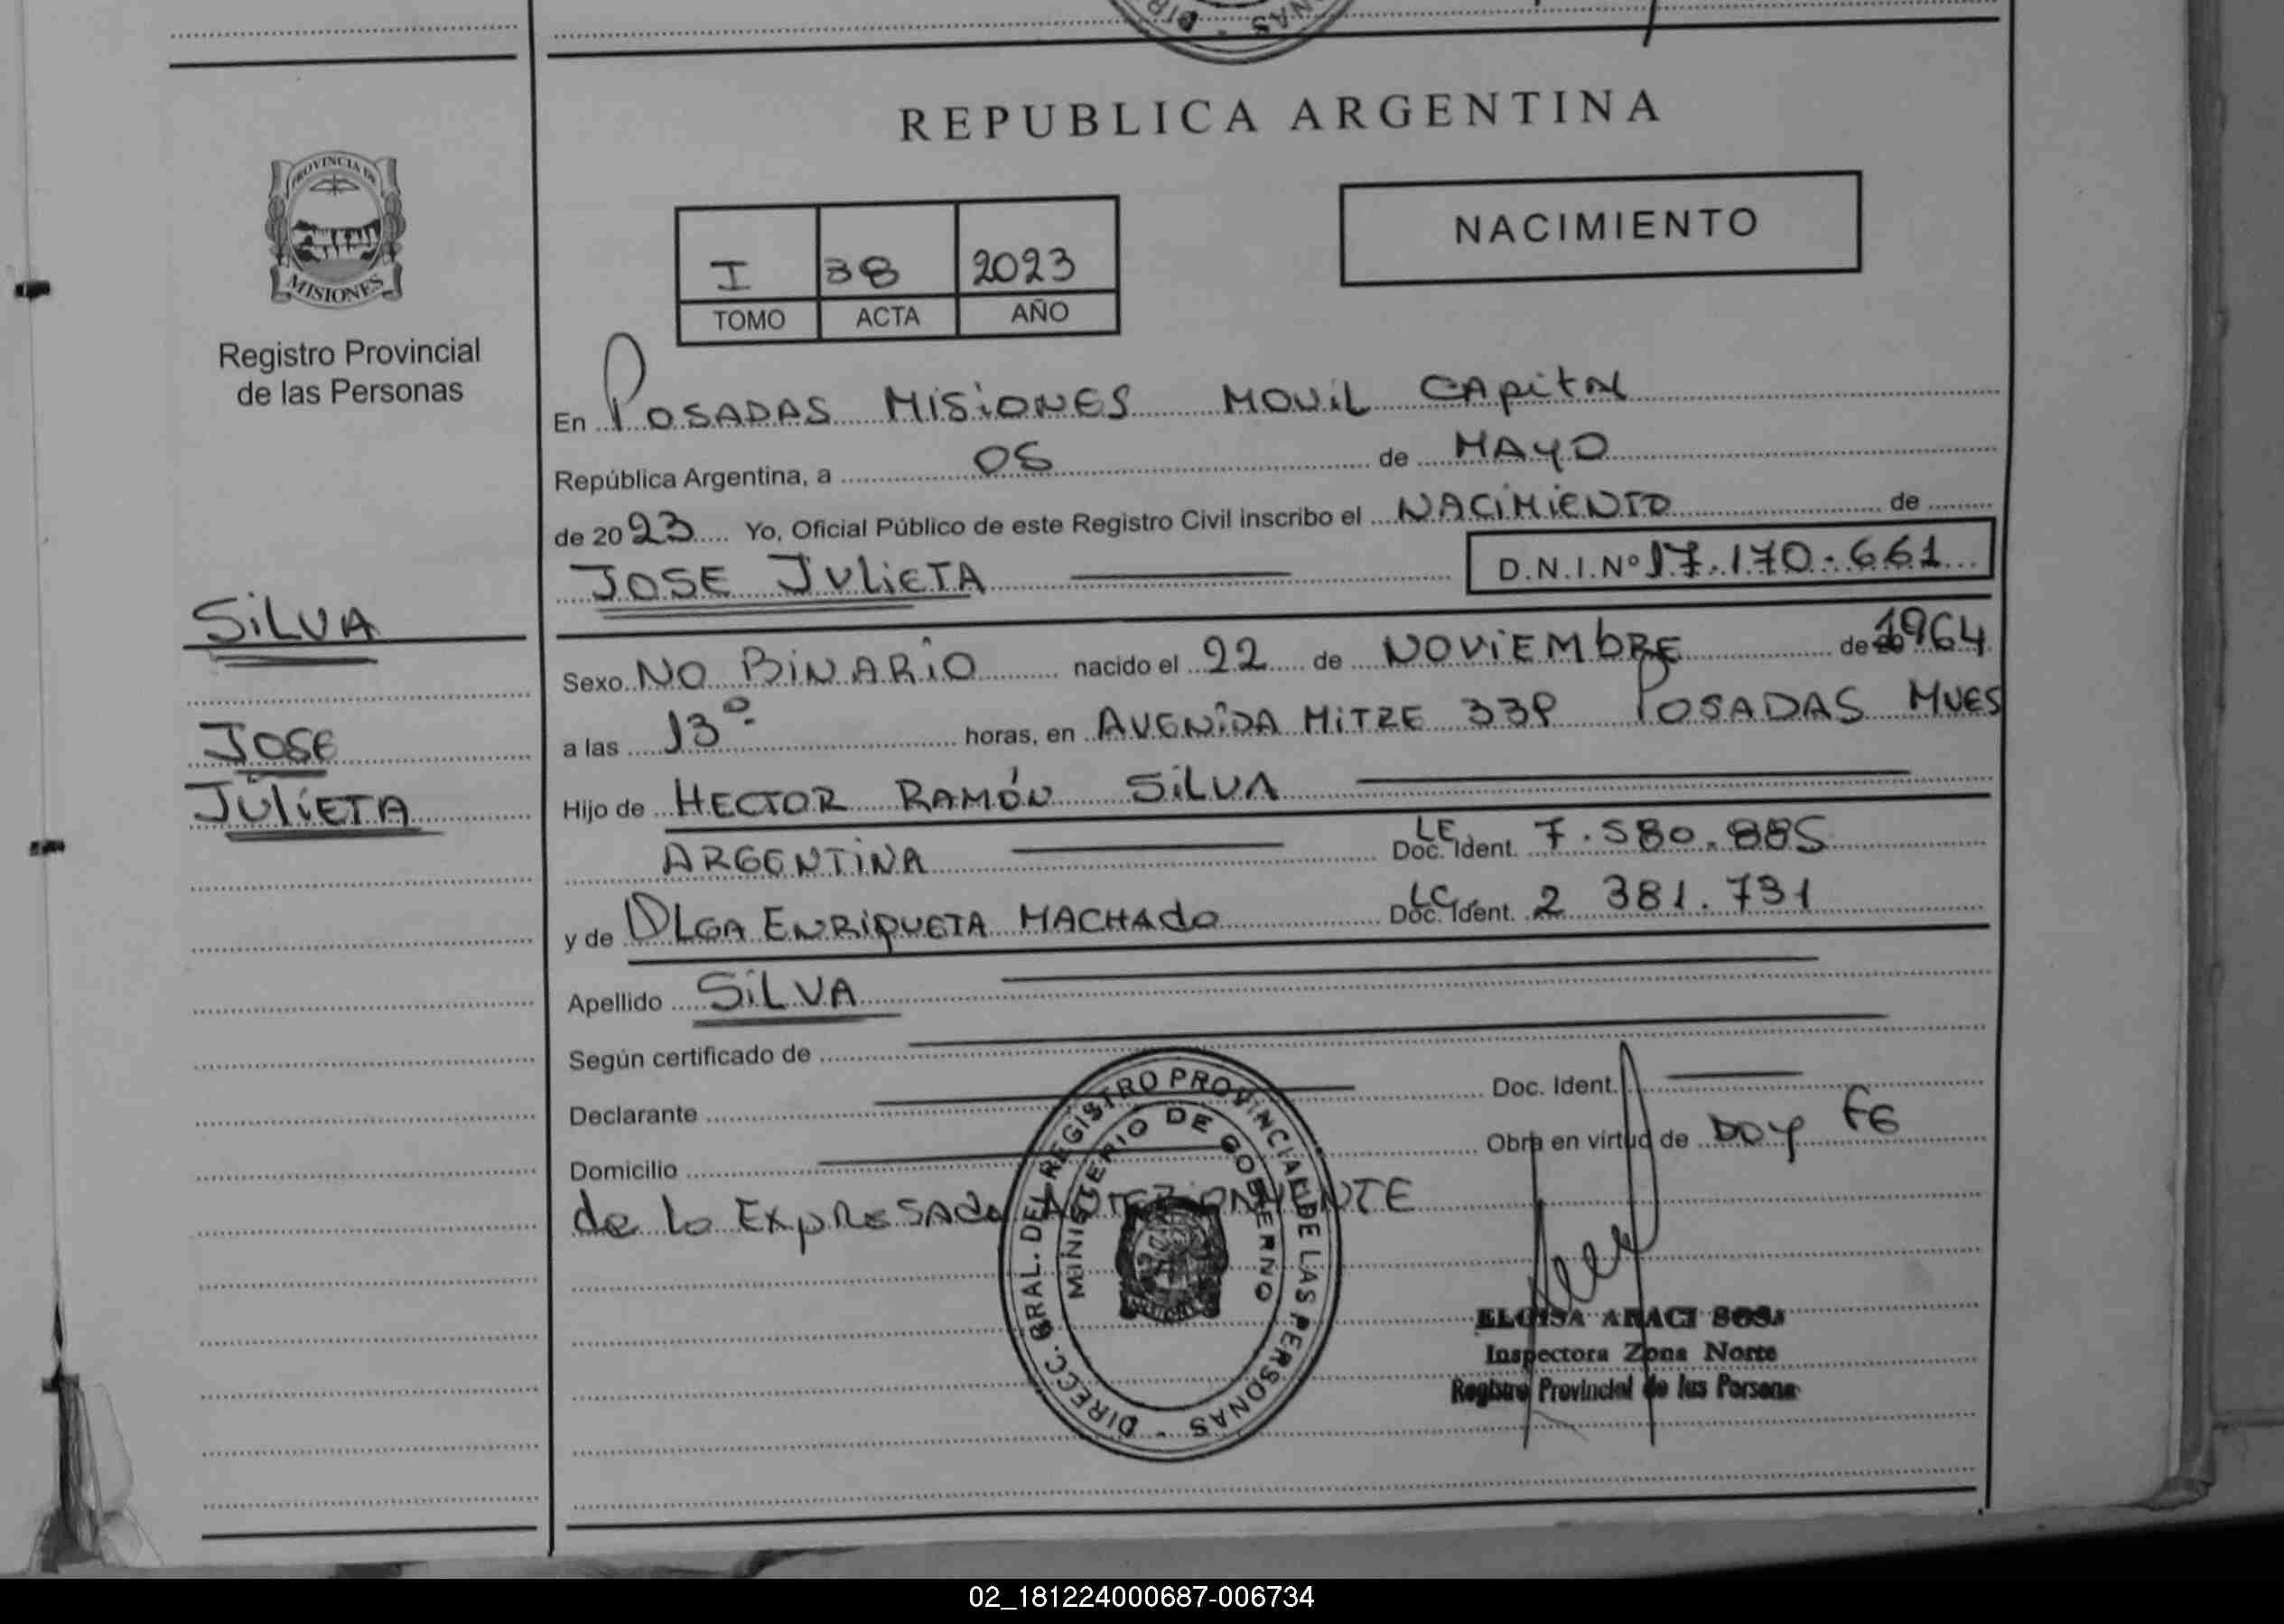 REPUBLICA ARGENTINA
PROVINCIA DE
MISIONES
Registro Provincial
de las Personas
NACIMIENTO
I 38 2023
TOMO ACTA AÑO
En POSADAS MISIONES MOVIL CAPITAL
República Argentina, a 05 de MAYO
de 2023 Yo, Oficial Público de este Registro Civil inscribo el NACIMIENTO de
JOSE JULIETA D.N.I.Nº 17.170.661
SILVA
JOSE
JULIETA
Sexo NO BINARIO nacido el 22 de NOVIEMBRE de 1964
a las 13º horas, en AVENIDA MITRE 339 POSADAS MNES
Hijo de HECTOR RAMÓN SILVA
ARGENTINA LE Doc. Ident. 7.580.885
y de OLGA ENRIQUETA MACHADO LC Doc. Ident. 2 381.731
Apellido SILVA
Según certificado de
Declarante Doc. Ident.
Domicilio Obra en virtud de DOY FE
de lo EXPRESADO ANTERIORMENTE
DIRECC. GRAL. DEL REGISTRO PROVINCIAL DE LAS PERSONAS -
MINISTERIO DE GOBIERNO
ELOISA ARACI SOSA
Inspectora Zona Norte
Registro Provincial de las Persona
02_181224000687-006734